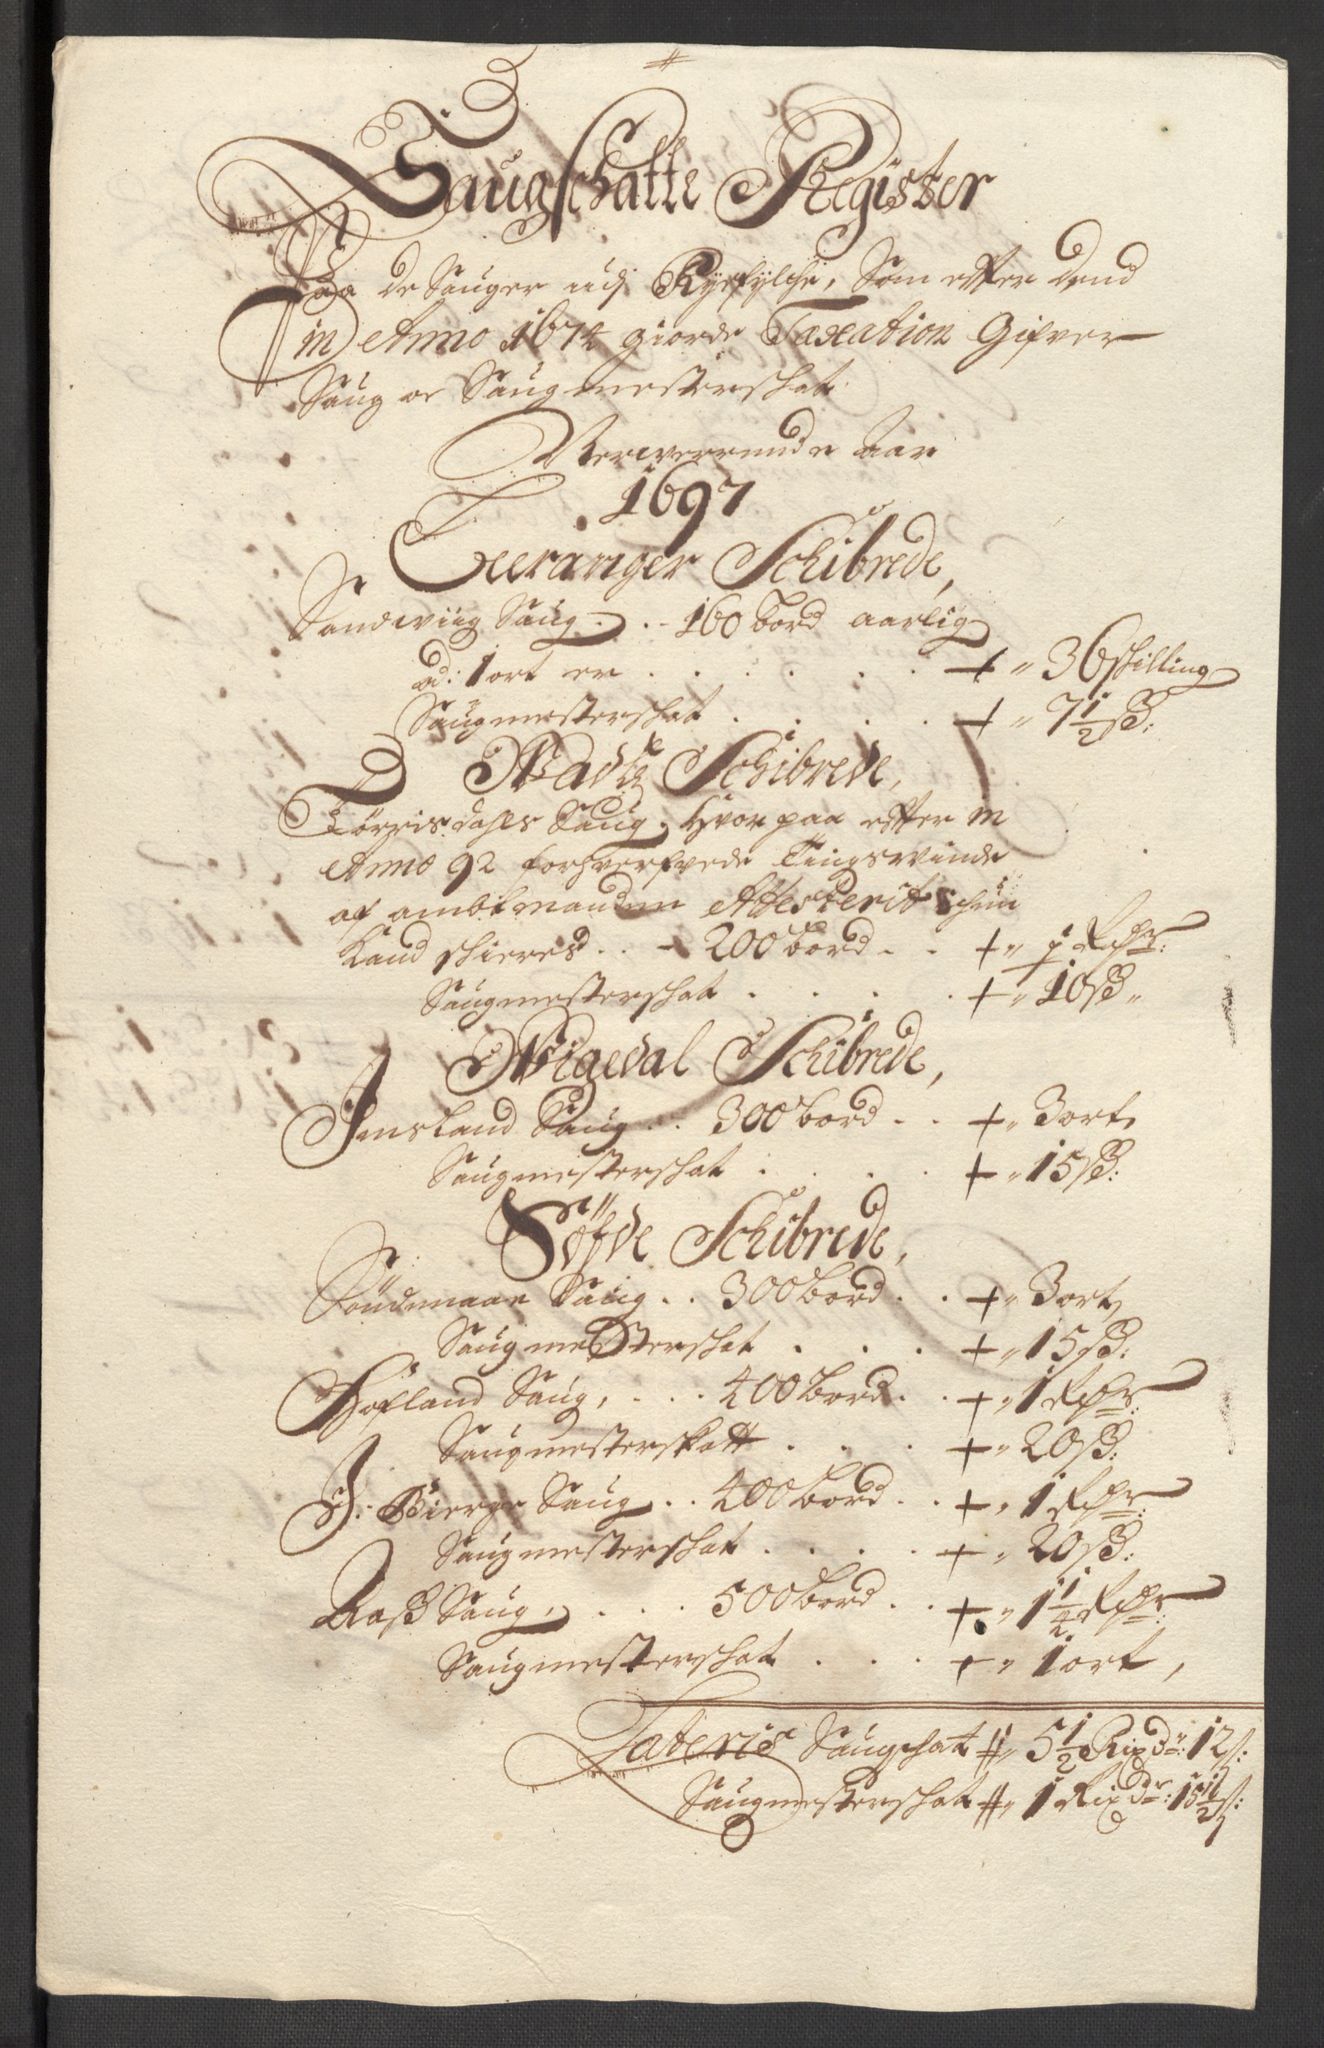 Saugschatte Register
Paa de Sauger udj Ryefylche, Som effter dend
in Anno 1674 giorde Taxation Gifver
Saug oc Saugmesterschat
Nerverrende Aar
1697
Jeeranger Schibrede,
Sandwiig Saug . . . 160 bord aarlig
ad: 1 ort er . . . . . + „ 36 schilling
Saugmesterschat . . . . + „ 7 1/2 sß:
Wadtz Schibrede,
Törrisdahls Saug, hvor paa effter in
Anno 92 forhverfvede Tingswinde
af ambtmanden Attesterit schun
kand schieres . . - 200 bord . . + „ 1/2 Rdr:
Saugmesterschat . . . . + „ 10 sß „
Wigedal Schibrede,
Imsland Saug . . 300 bord . . + „ 3 ort,
Saugmesterschat . . . . + „ 15 sß:
Söfde Schibrede,
Söndenaae Saug . . 300 bord . . + „ 3 ort,
Saugmesterschat . . . + „ 15 sß:
Hofland Saug, . . . 400 bord . . + „ 1 Rdr:
Saugmesterskatt . . . + „ 20 sß:
J. Bierge Saug . . 400 bord . . + „ 1 Rdr:
Saugmesterschat . . . . + „ 20 sß:
Raß Saug, . . . 500 bord . . + „ 1 1/4 Rdr:
Saugmesterschat . . . + „ 1 ort,
Lateris Saugschat # „ 5 1/2 Rixdr: 12 s:
Saugmesterschat # „ 1 Rixdr: 15 1/2 s: